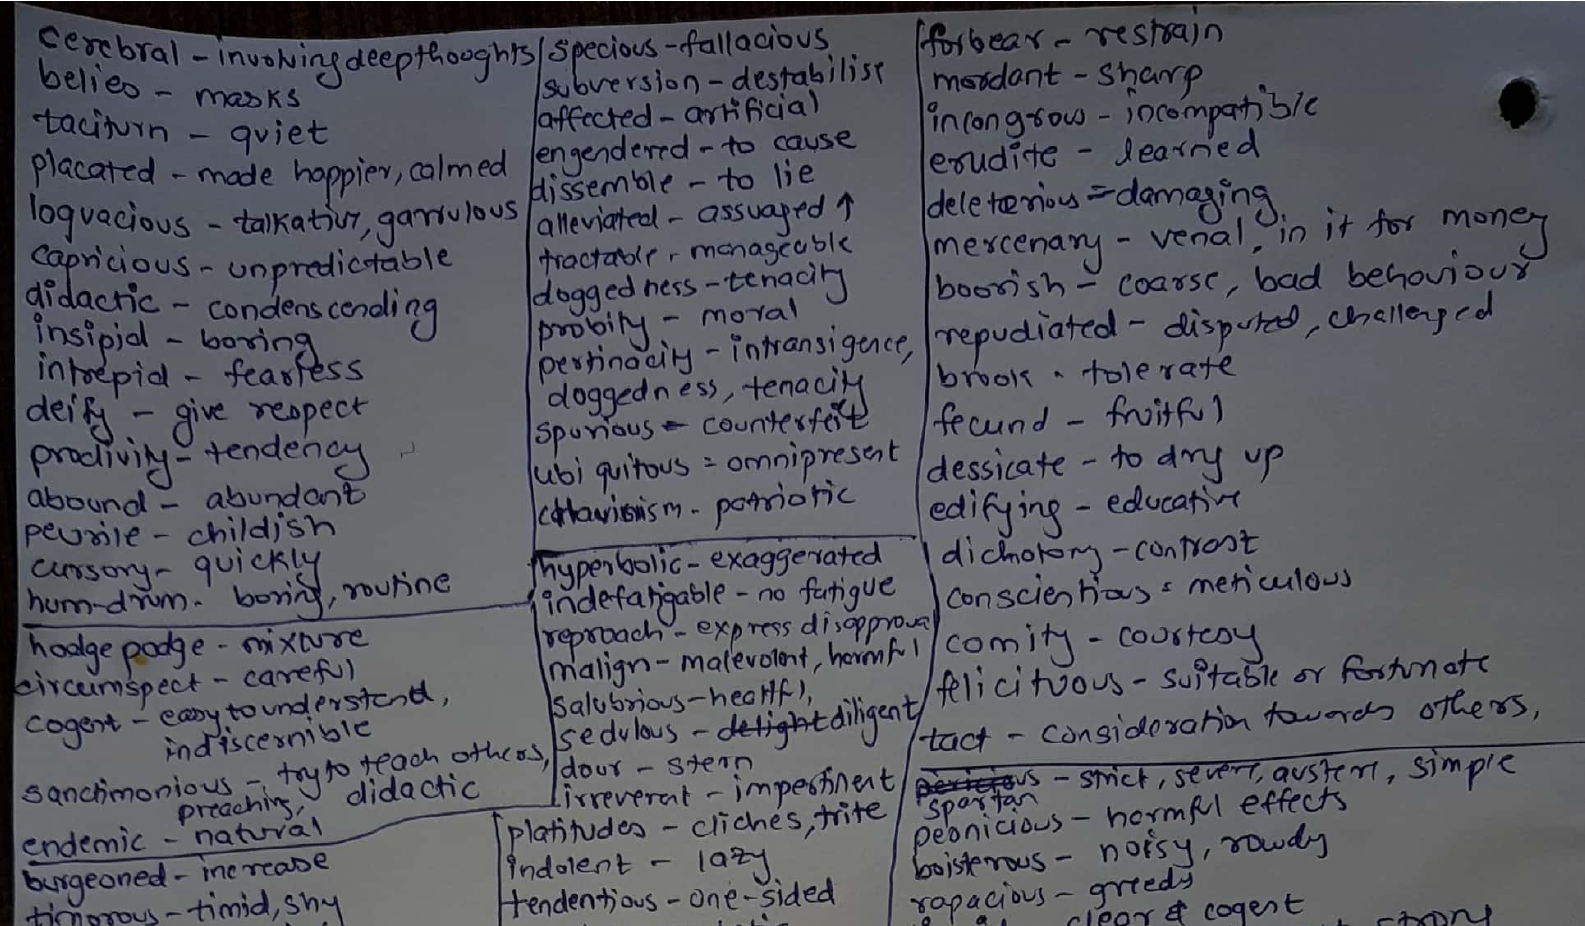 cerebral - involving deep thoughts
belies - masks
taciturn - quiet
placated - made happier, calmed
loquacious - talkative, garrulous
capricious - unpredictable
didactic - condenscending
insipid - boring
intrepid - fearless
deify - give respect
proclivity - tendency
abound - abundant
peurile - childish
cursory - quickly
hum-drum - boring, routine
hodge podge - mixture
circumspect - careful
cogent - easy to understand,
indiscernible
sanctimonious - try to teach others,
preaching, didactic
endemic - natural
burgeoned - increase
timorous - timid, shy
specious - fallacious
subversion - destabilise
affected - artificial
engendered - to cause
dissemble - to lie
alleviated - assuaged ↑
tractable - manageable
doggedness - tenacity
probity - moral
pertinacity - intransigence,
doggedness, tenacity
spurious - counterfeit
ubiquitous = omnipresent
- patriotic
hyperbolic - exaggerated
indefatigable - no fatigue
reproach - express disapproval
malign - malevolent, harmful
salubrious - healtful,
sedulous - delight diligent
dour - stern
irreverent - impertinent
platitudes - cliches, trite
indolent - lazy
tendentious - one-sided
forbear - restrain
mordant - sharp
incongrous - incompatible
erudite - learned
deleterious = damaging
mercenary - venal, in it for money
boorish - coarse, bad behaviour
repudiated - disputed, challenged
brook - tolerate
fecund - fruitful
dessicate - to dry up
edifying - educative
dichotomy - contrast
conscientious = meticulous
comity - courtesy
felicituous - suitable or fortunate
tact - consideration towards others,
spartan - strict, severe, austere, simple
peonicious - harmful effects
boisterous - noisy, rowdy
rapacious - greedy
clear & cogent
strong